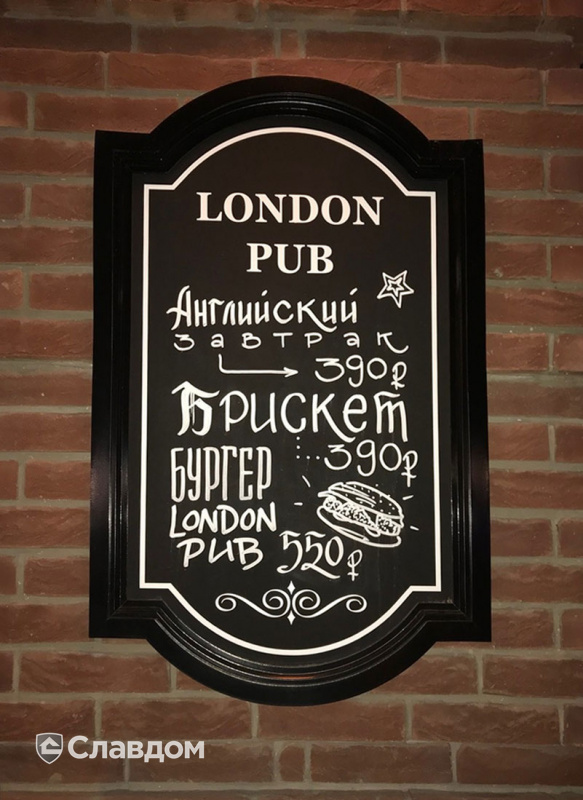 LONDON
PUB
Английский
завтрак
390₽
Брискет
390₽
БУРГЕР
LONDON
PUB 550₽
Славдом